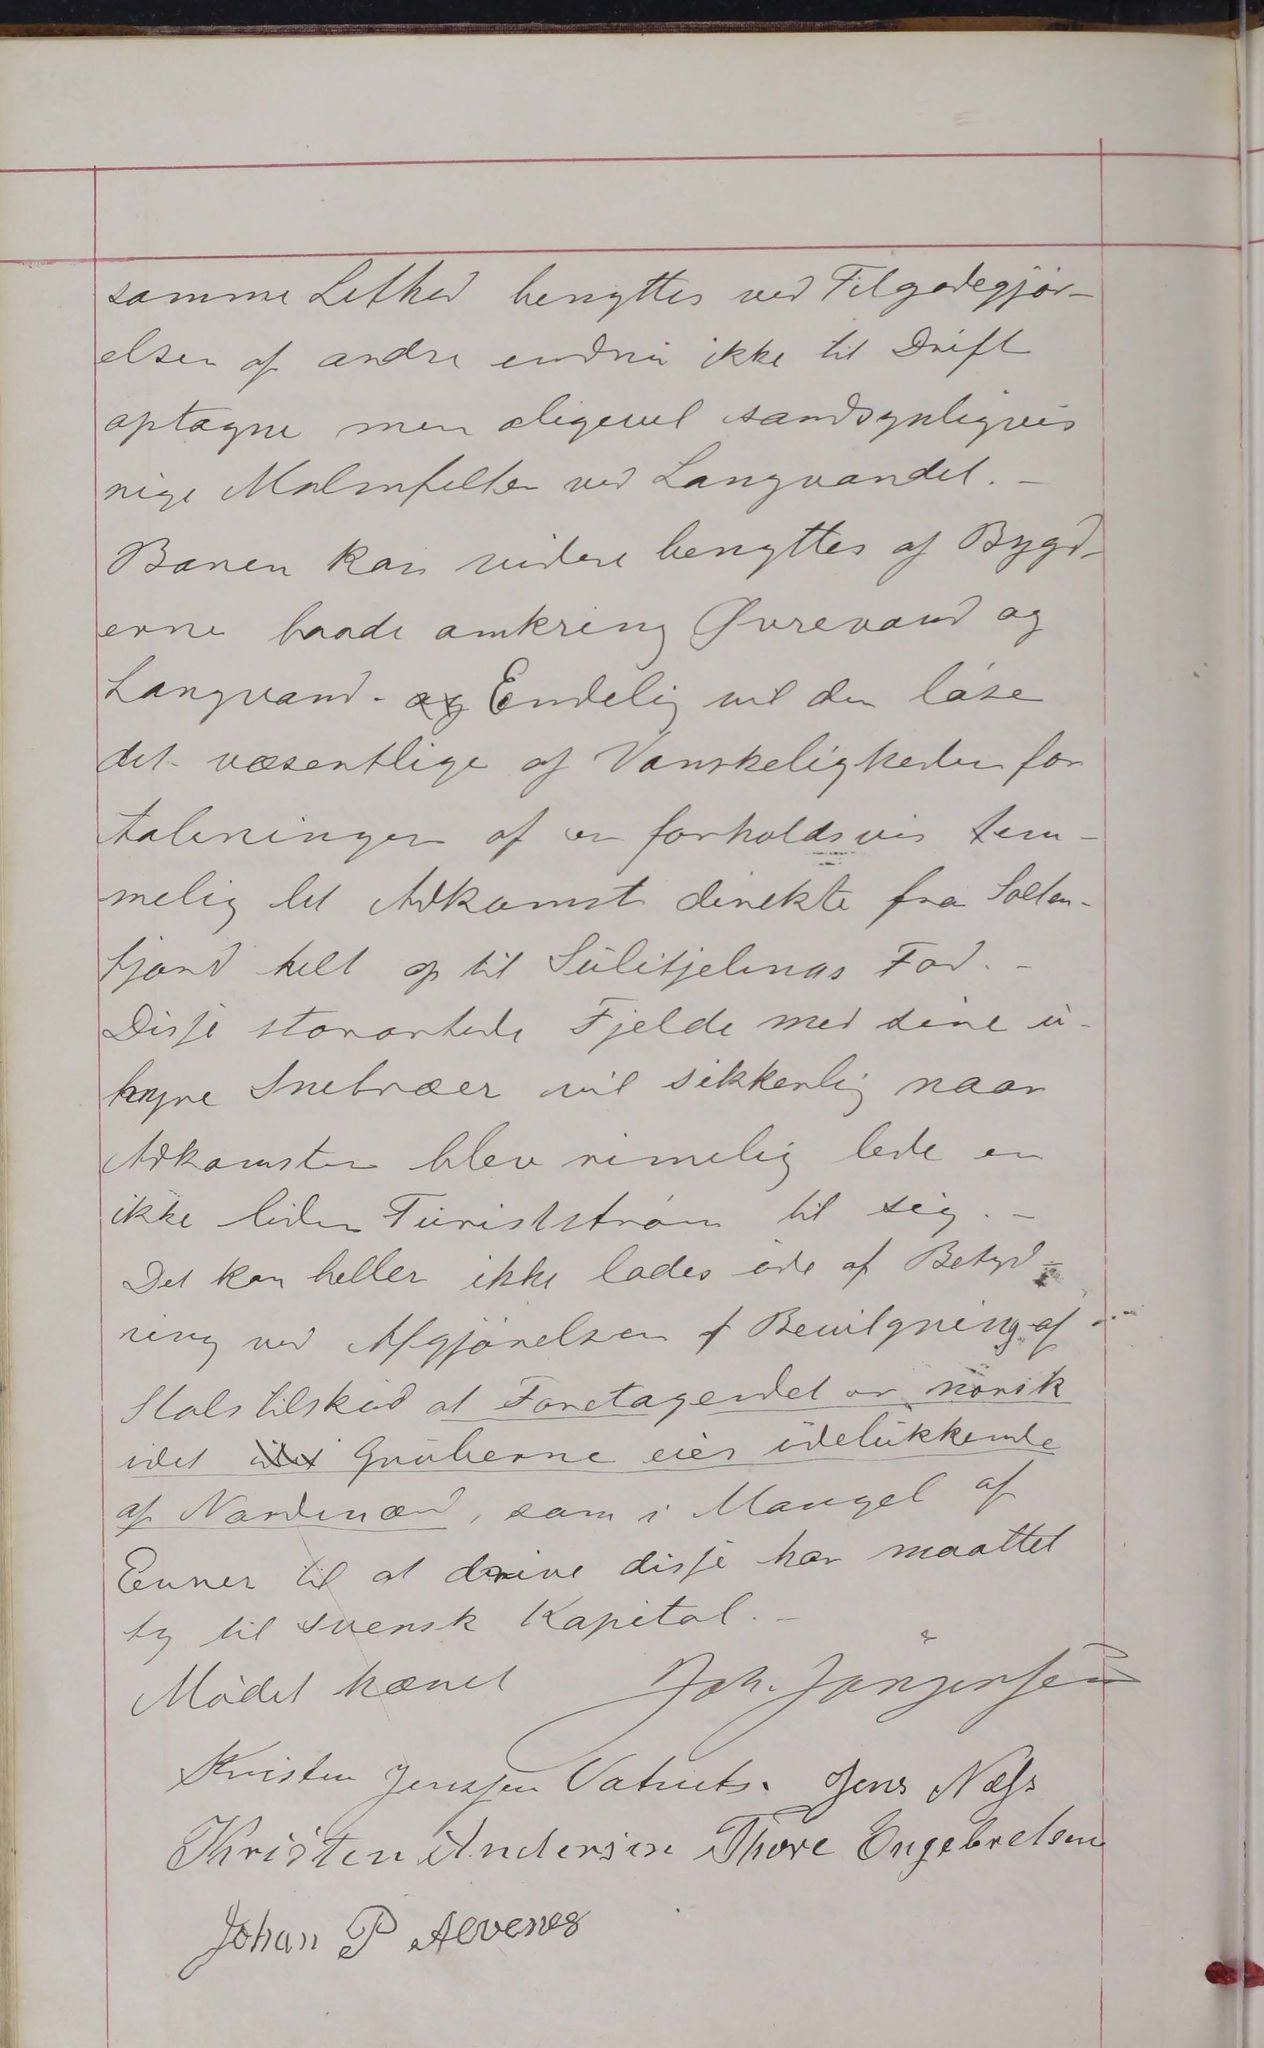 samme Lethed benyttes ved Tilgodegjör-
elsen af andre endnu ikke til Drift
optagne men aligevel sandsynligvis
rige Malmfelter ved Langvandet. -
Banen kan videre benyttes af Bygd-
erne baade omkring Øvrevand og
Langvand. og Endelig vil den löse
det væsentlige af Vanskeligheden for
Aabningen af en forholdsvis tem-
melig let Adkomst direkte fra Salten-
fjord helt op til Sulitjelmas Fod. -
Disse storartede Fjelde med sine u-
hyre Snebræer vil sikkerlig naar
Adkomsten blev rimelig lede en
ikke liden Turistström til sig. -
Det kan heller ikke lades ude af Betyd-
ning ved Afgjörelsen af Bevilgning af
Statstilskud at Foretagendet er norsk
idet idet Gruberne eies udelukkende
af Nordmænd, som i Mangel af
Evner til at drive disse har maattet
ty til svensk Kapital. -
Mödet hævet Joh. Jörgensen
Kristen Jenssen Vatnets. Jens Næss
Kristen Andersen Thore Engebretsen
Johan P Alvenes